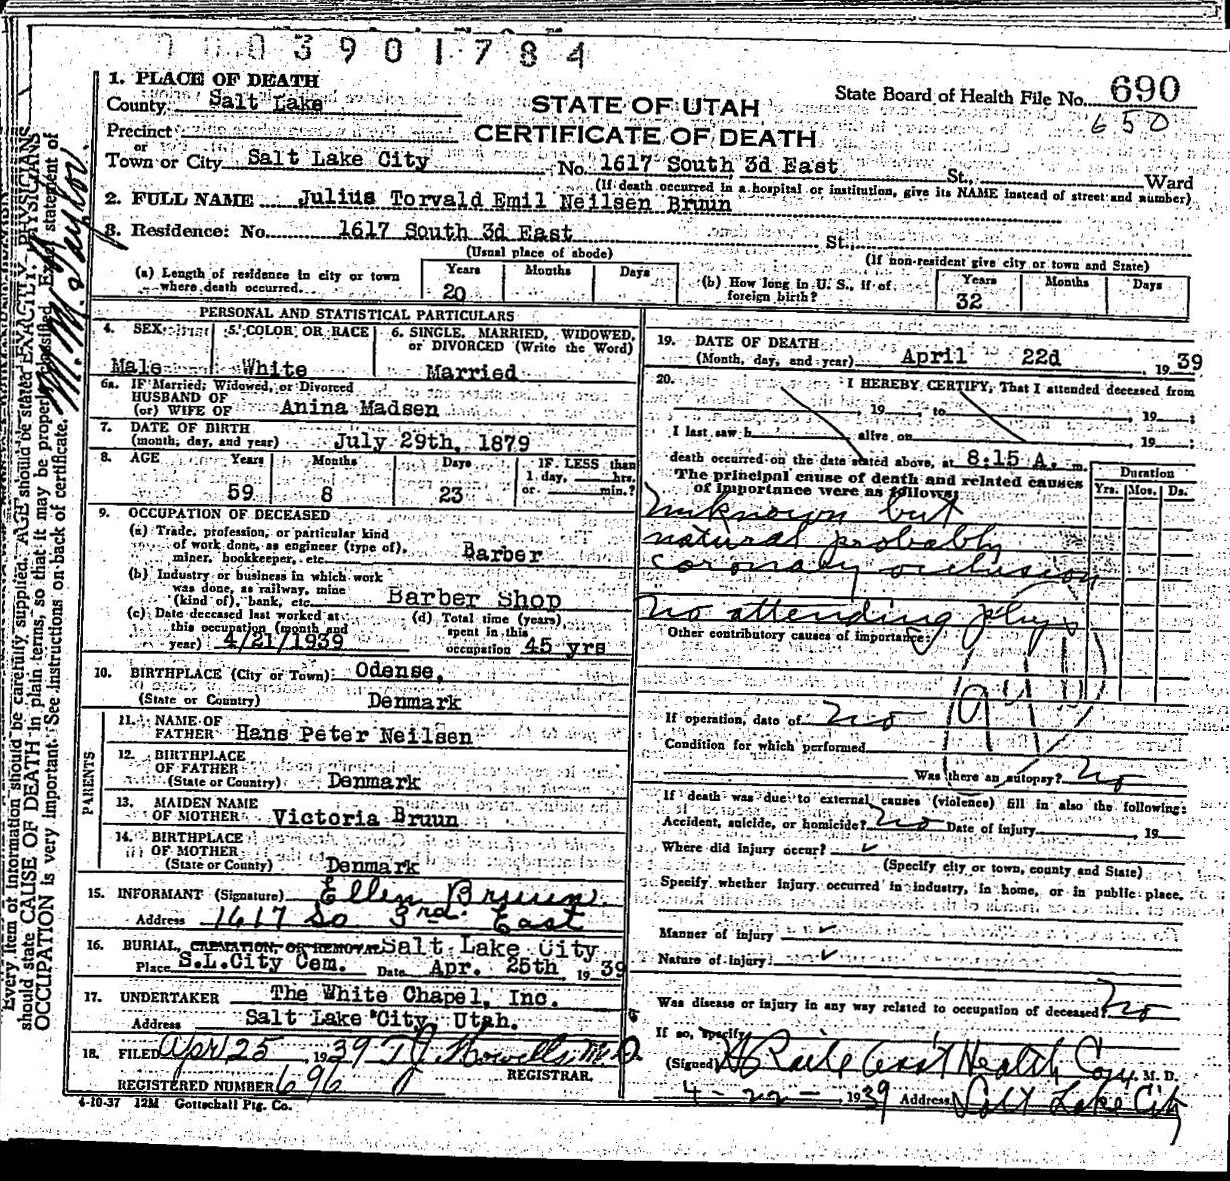 0003901784
1. PLACE OF DEATH
County Salt Lake
STATE OF UTAH
State Board of Health File No. 690
650
Precinct
or
CERTIFICATE OF DEATH
Town or City Salt Lake City No. 1617 South 3d East St., Ward
(If death occurred in a hospital or institution, give its NAME instead of street and number)
2. FULL NAME Julius Torvald Emil Neilsen Bruun
3. Residence: No. 1617 South 3d East St.,
(Usual place of abode) (If non-resident give city or town and State)
(a) Length of residence in city or town where death occurred. Years 20 Months Days
(b) How long in U. S., if of foreign birth? Years 32 Months Days
PERSONAL AND STATISTICAL PARTICULARS
4. SEX Male
5. COLOR OR RACE White
6. SINGLE, MARRIED, WIDOWED, or DIVORCED (Write the Word) Married
6a. IF Married, Widowed, or Divorced
HUSBAND OF
(or) WIFE OF Anina Madsen
7. DATE OF BIRTH
(month, day, and year) July 29th, 1879
8. AGE Years 59 Months 8 Days 23 IF LESS than 1 day, hrs. or min.?
9. OCCUPATION OF DECEASED
(a) Trade, profession, or particular kind
of work done, as engineer (type of),
miner, bookkeeper, etc. Barber
(b) Industry or business in which work
was done, as railway, mine
(kind of), bank, etc. Barber Shop
(c) Date deceased last worked at
this occupation (month and
year) 4/21/1939
(d) Total time (years)
spent in this
occupation 45 yrs
10. BIRTHPLACE (City or Town): Odense,
(State or Country) Denmark
PARENTS
11. NAME OF
FATHER Hans Peter Neilsen
12. BIRTHPLACE
OF FATHER
(State or Country) Denmark
13. MAIDEN NAME
OF MOTHER Victoria Bruun
14. BIRTHPLACE
OF MOTHER
(State or Country) Denmark
15. INFORMANT (Signature) Ellen Bruun
Address 1617 So 3rd East
16. BURIAL, CREMATION, OR REMOVAL Salt Lake City
Place S.L.City Cem. Date Apr. 25th, 1939
17. UNDERTAKER The White Chapel, Inc.
Address Salt Lake City, Utah.
18. FILED Apr 25, 1939 T J Howells M.D.
REGISTRAR.
REGISTERED NUMBER 696
4-10-37 12M Gottschall Ptg. Co.
19. DATE OF DEATH
(Month, day, and year) April 22d 1939
20. I HEREBY CERTIFY, That I attended deceased from
, 19 , to , 19 ;
I last saw h alive on , 19 ;
death occurred on the date stated above, at 8:15 A. m.
The principal cause of death and related causes
of importance were as follows:
Duration
Yrs. Mos. Ds.
Unknown but
natural probably
coronary occlusion
No attending phys
Other contributory causes of importance:
If operation, date of no
Condition for which performed
Was there an autopsy? no
If death was due to external causes (violence) fill in also the following:
Accident, suicide, or homicide? no Date of injury , 19
Where did injury occur? ✓
(Specify city or town, county and State)
Specify whether injury occurred in industry, in home, or in public place.
Manner of injury ✓
Nature of injury ✓
Was disease or injury in any way related to occupation of deceased? no
If so, specify
(Signed) Health Com, M. D.
4-22-, 1939 Address Salt Lake City
Every item of information should be carefully supplied. AGE should be stated EXACTLY. PHYSICIANS
should state CAUSE OF DEATH in plain terms, so that it may be properly classified. Exact statement of
OCCUPATION is very important. See instructions on back of certificate.
M. M. Taylor.